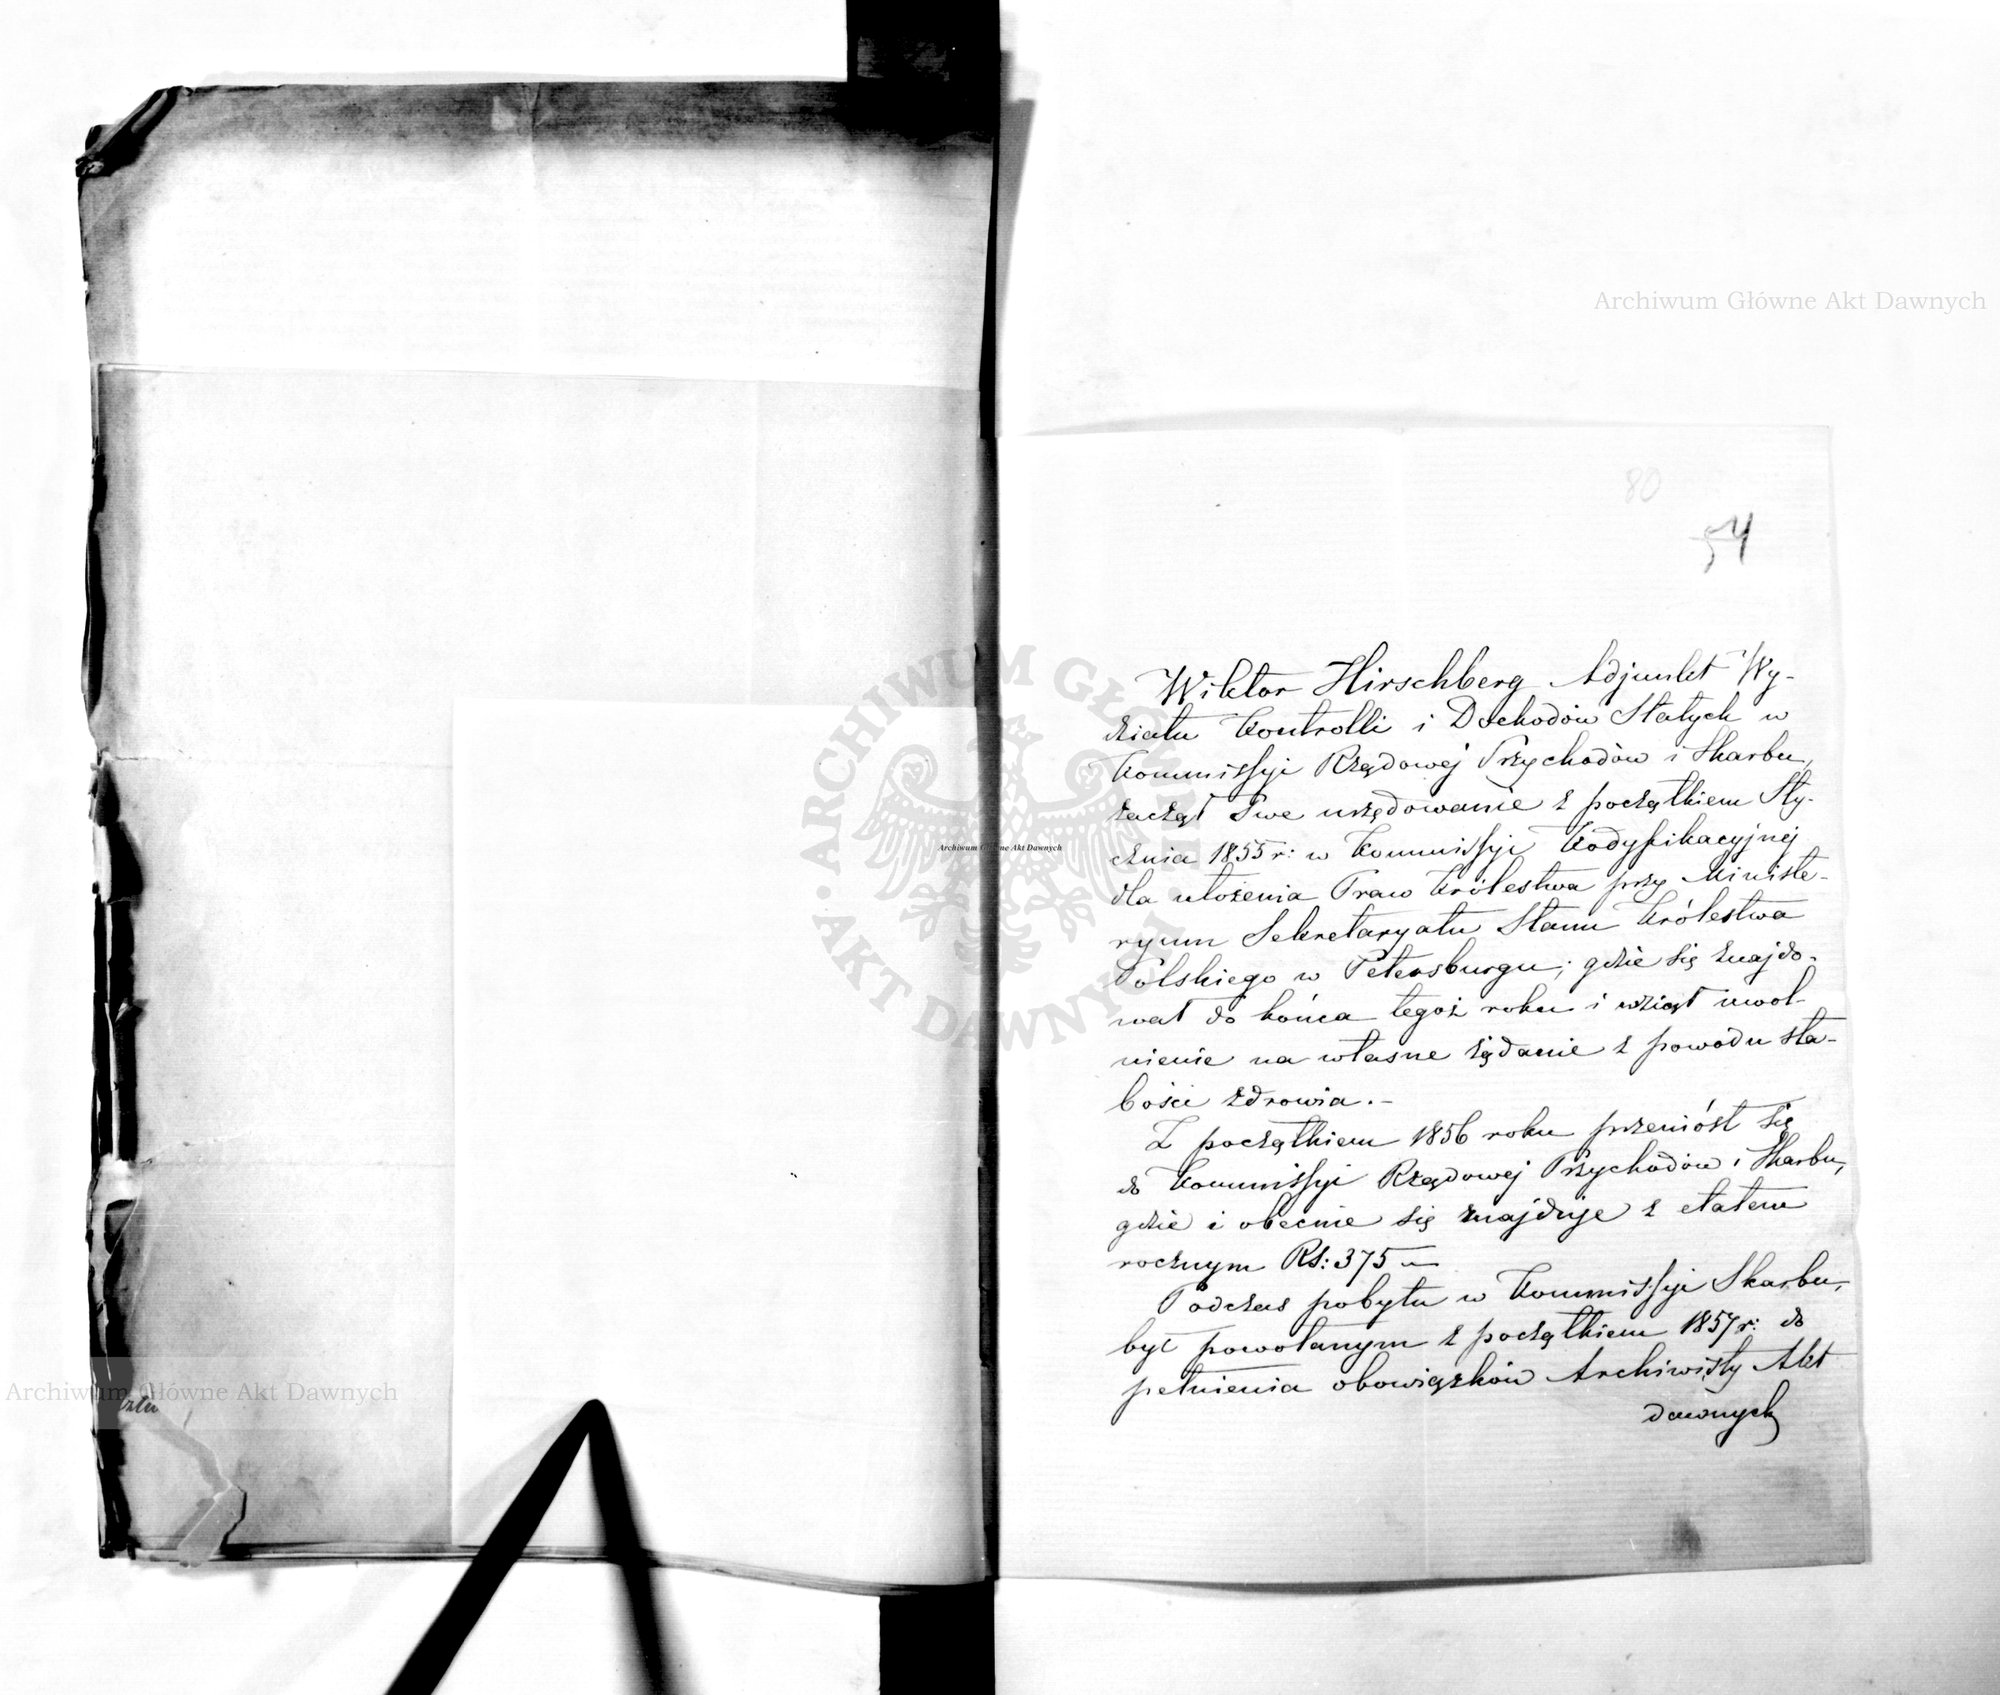 Archiwum Główne Akt Dawnych
80
54
Wiktor Hirschberg Adjunkt Wy-
działu Kontrolli i Dochodów Stałych w
Kommissyi Rządowej Przychodów i Skarbu,
zaczął swe urzędowanie z początkiem Sty-
cznia 1855 r: w Kommissyi Kodyfikacyjnej
dla ułożenia Praw Królestwa przy Ministe-
ryum Sekretaryatu Stanu Królestwa
Polskiego w Petersburgu; gdzie się znajdo-
wał do końca tegoż roku i wziął uwol-
nienie na własne żądanie z powodu sła-
bości zdrowia.-
Z początkiem 1856 roku przeniósł się
do Kommissyi Rządowej Przychodów i Skarbu,
gdzie i obecnie się znajduje z etatem
rocznym Rs: 375 -
Podczas pobytu w Kommissyi Skarbu,
był powołanym z początkiem 1857 r: do
pełnienia obowiązków Archiwisty Akt
dawnych
ARCHIWUM GŁÓWNE AKT DAWNYCH
Archiwum Główne Akt Dawnych
Archiwum Główne Akt Dawnych